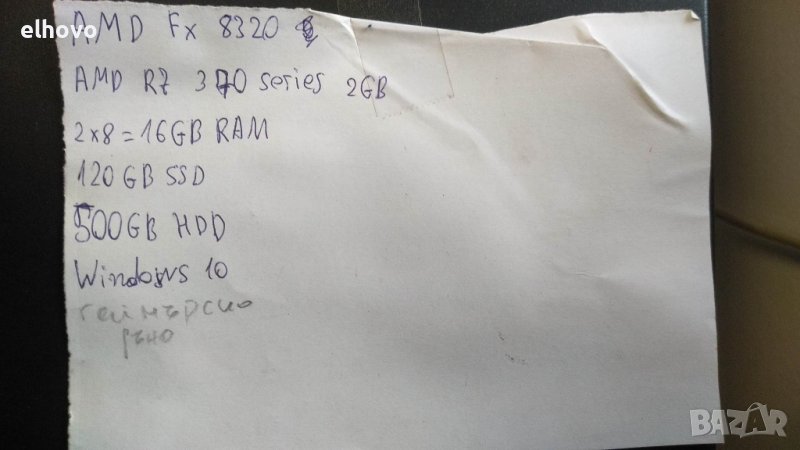 elhovo
AMD Fx 8320
AMD R7 370 series 2GB
2x8=16GB RAM
120GB SSD
500GB HDD
Windows 10
геймърско
дъно
BAZAR